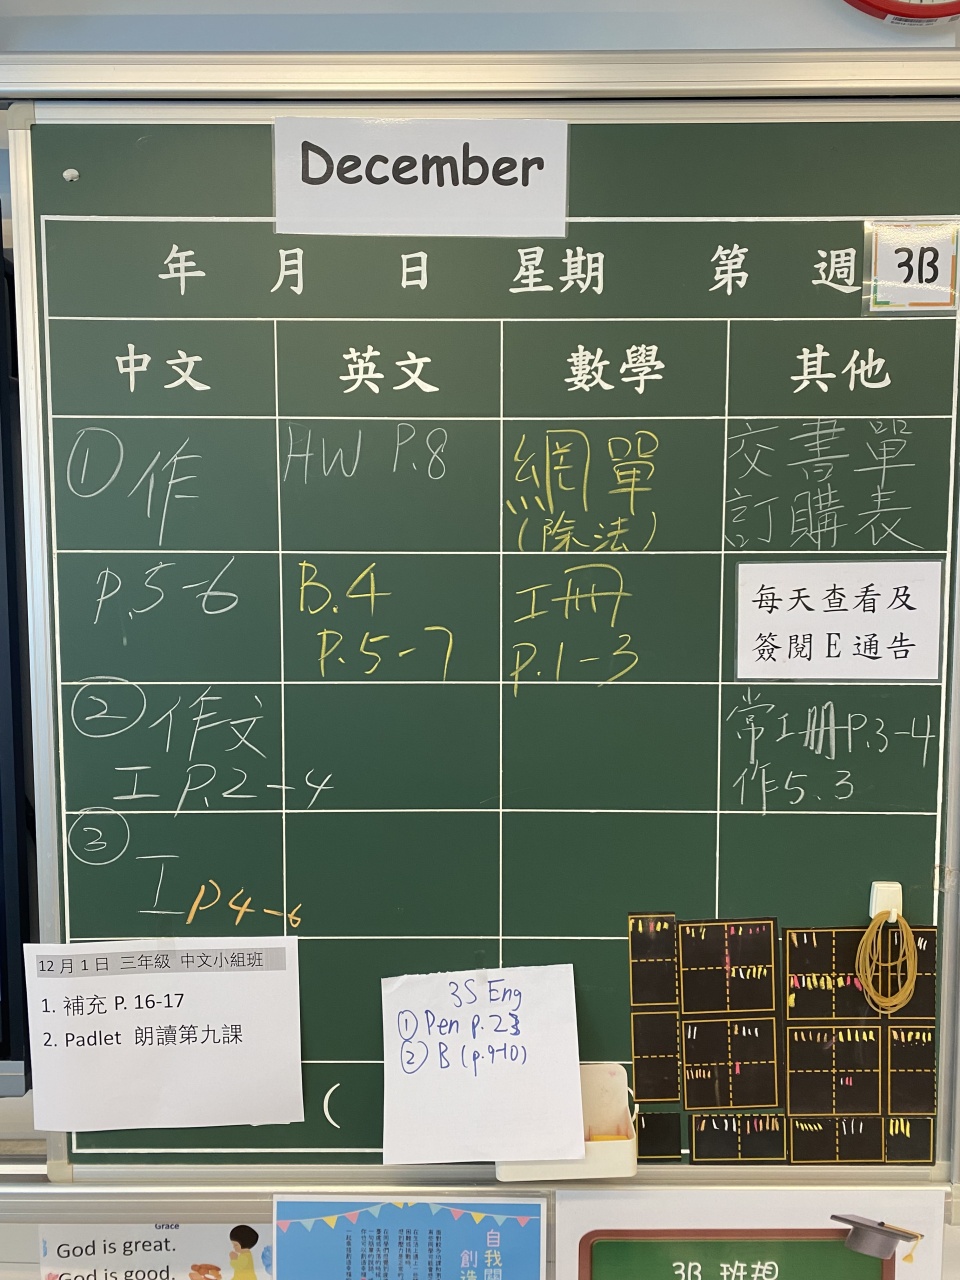 December
年 月 日 星期 第 週 3B
中文 英文 數學 其他
① 作
P.5-6
② 作文
工 P.2-4
③
工 P4-6
HW P.8
B.4
P.5-7
網單
(除法)
工冊
P.1-3
交書單
訂購表
每天查看及
簽閱 E 通告
常工冊P.3-4
作5.3
12 月 1 日 三年級 中文小組班
1. 補充 P. 16-17
2. Padlet 朗讀第九課
(
3S Eng
① Pen p.23
② B (p.9-10)
Grace
God is great.
God is good.
自我
創造
3B 班規